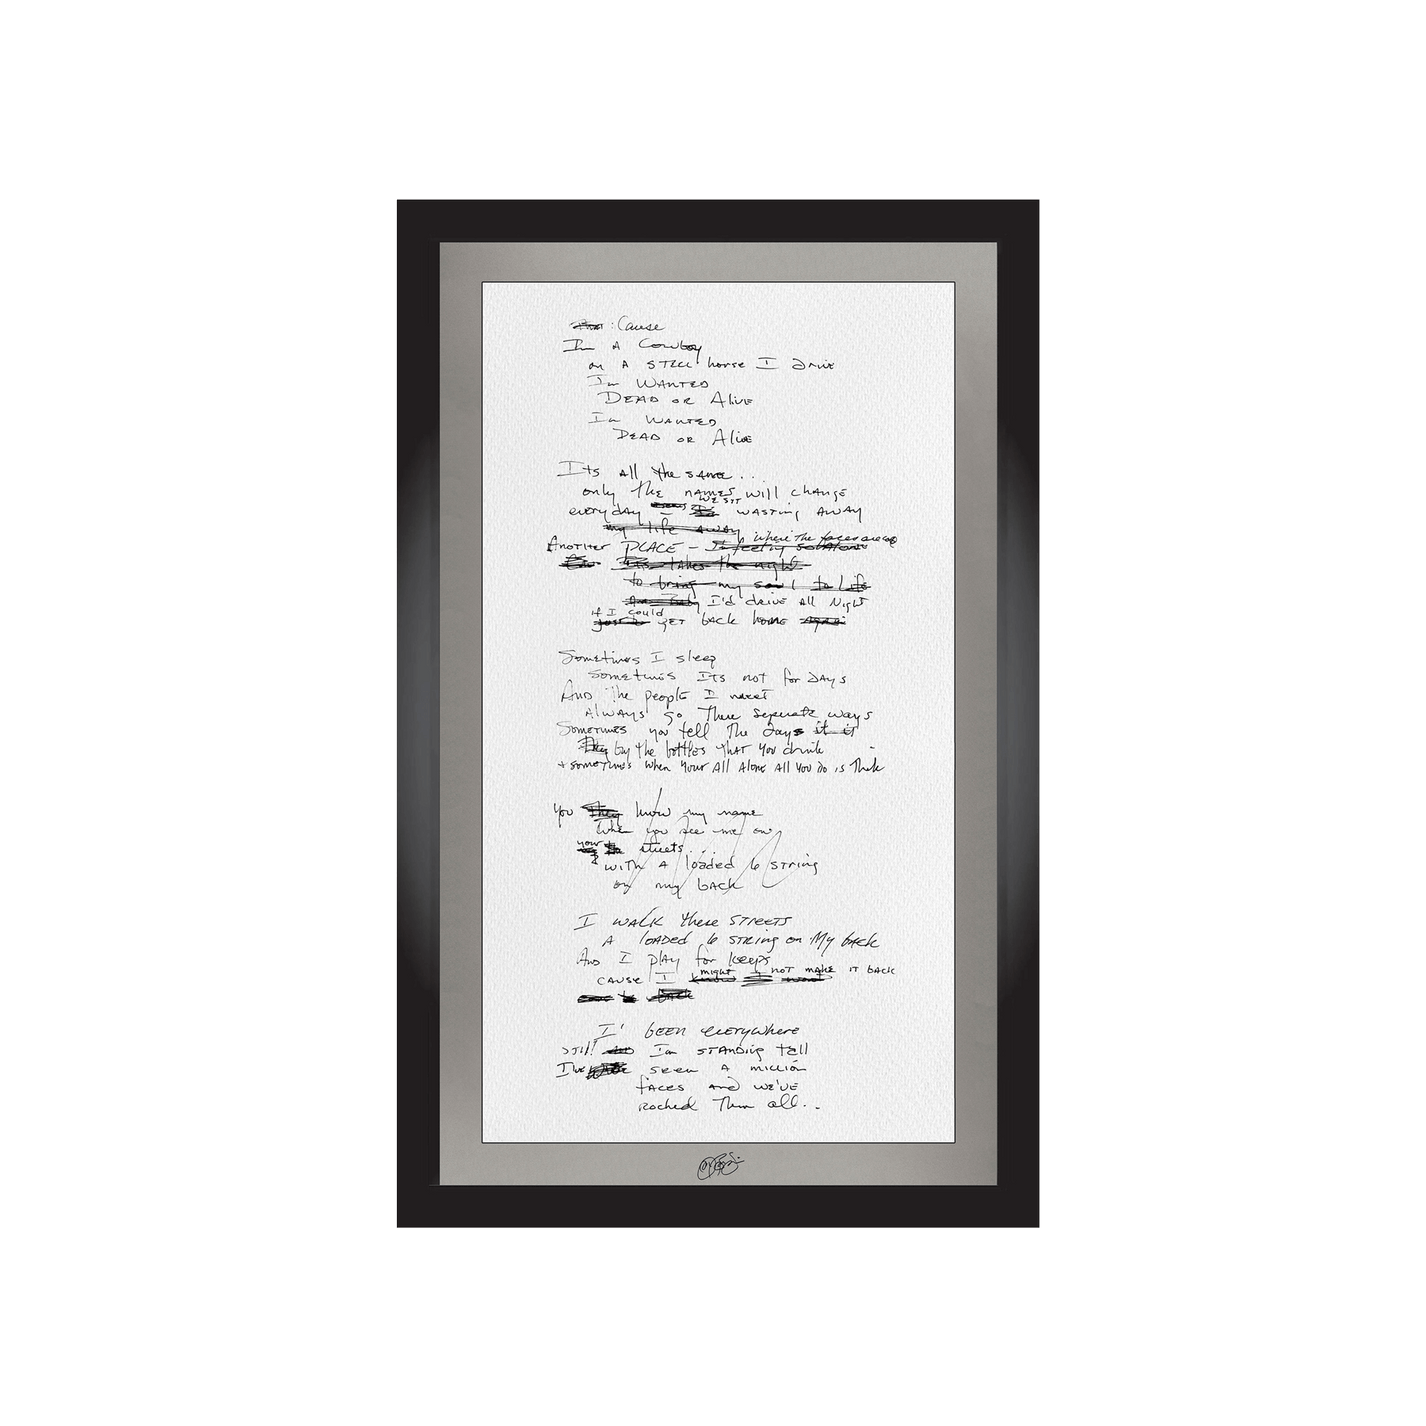 : Cause
Im A Cowboy
on A STEEL horse I drive
Im WANTED
DEAD or Alive
Im WANTED
DEAD or Alive
Its all the same...
only the names will change
WE SIT
everyday - wasting away
my life away
where the faces are
Another PLACE -
takes the night
to bring my soul to life
I'd drive all Night
if I could
get back home again
Sometimes I sleep
Sometimes Its not for days
And the people I meet
Always go there seperate ways
Sometimes you tell the days it it
by the bottles that you drink
+ sometimes when your all alone all you do is think
You they know my name
When you see me on
your
streets...
with a loaded 6 string
on my back
I walk these streets
A loaded 6 string on my back
And I play for keeps
might not make it back
cause I
back
I' been everywhere
still Im standing tall
I've seen a million
faces and we've
rocked them all..